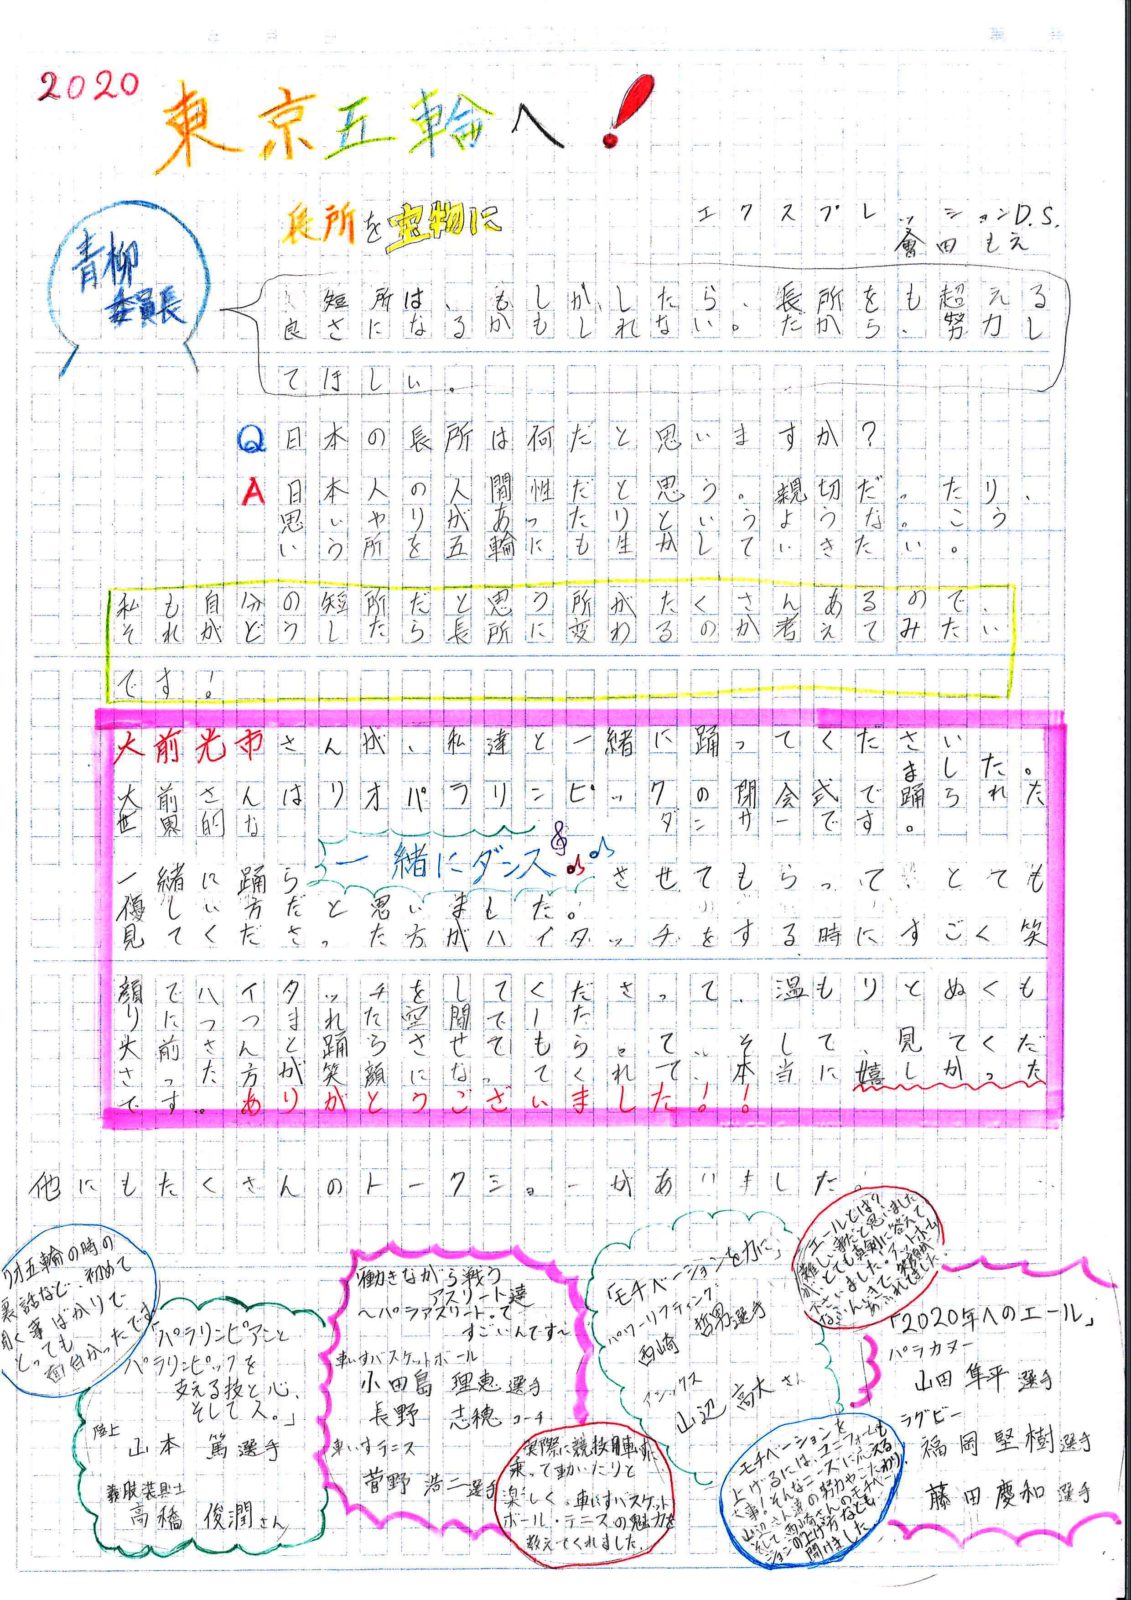 2020
東京五輪へ!
長所を宝物に
エクスプレッションD.S.
會田もえ
青柳
委員長
短所は、もしかしたら、長所をも超える
良さになるかもしれない。だから、努力し
てほしい。
Q 日本の長所は何だと思いますか?
A 日本人の人間性だと思う。親切だったり、
思いやりがあったりというような。こう
いう所を五輪にも生かしていきたい。
私も自分の短所だと思う所がたくさんあるので、
それがどうしたら長所に変わるのか考えてみたい
です!
大前光市さんが、私達と一緒に踊ってください
ました。
大前さんはリオパラリンピックの閉会式で踊られた
世界的なダンサーです。
一緒にダンス
一緒に踊らさせてもらって、とても
優しい方だと思いました。
見てくださった方がハイタッチをする時にすごく笑
顔でハイタッチをしてくださって、温もりとぬくも
りにつつまれた空間でした
大前さんと踊らさせてもらって、そして、見てくだ
さった方が笑顔になってくれて、本当に嬉しかった
です。ありがとうございました!!
他にもたくさんのトークショーがありました。
リオ五輪の時の
裏話など、初めて
聞く事ばかりで
とっても
面白かったです
「パラリンピアンと
パラリンピックを
支える技と心、
そして人。」
陸上
山本 篤選手
義肢装具士
高橋 俊潤さん
働きながら戦う
アスリート達
～パラアスリートって
すごいんです～
車いすバスケットボール
小田島 理恵選手
長野 志穂コーチ
車いすテニス
菅野 浩二選手
実際に競技用車いすに
乗って動いたりと
楽しく、車いすバスケット
ボール・テニスの魅力を
教えてくれました。
「モチベーションを力に」
パワーリフティング
西崎 哲男選手
イシックス
山辺 高大さん
モチベーションを
上げるには、ユニフォームも
大事!そんなニーズに応える
山辺さん達の努力やこだわり、
そして西崎さんのモチベー
ションの上げ方なども
聞けました
エールとは?
難しい事だと思いました
が、とても真剣に答えて下
さいました。アットホーム
なふんいきで、笑顔が
あふれてました
「2020年へのエール」
パラカヌー
山田 隼平選手
ラグビー
福岡 堅樹選手
藤田 慶和選手